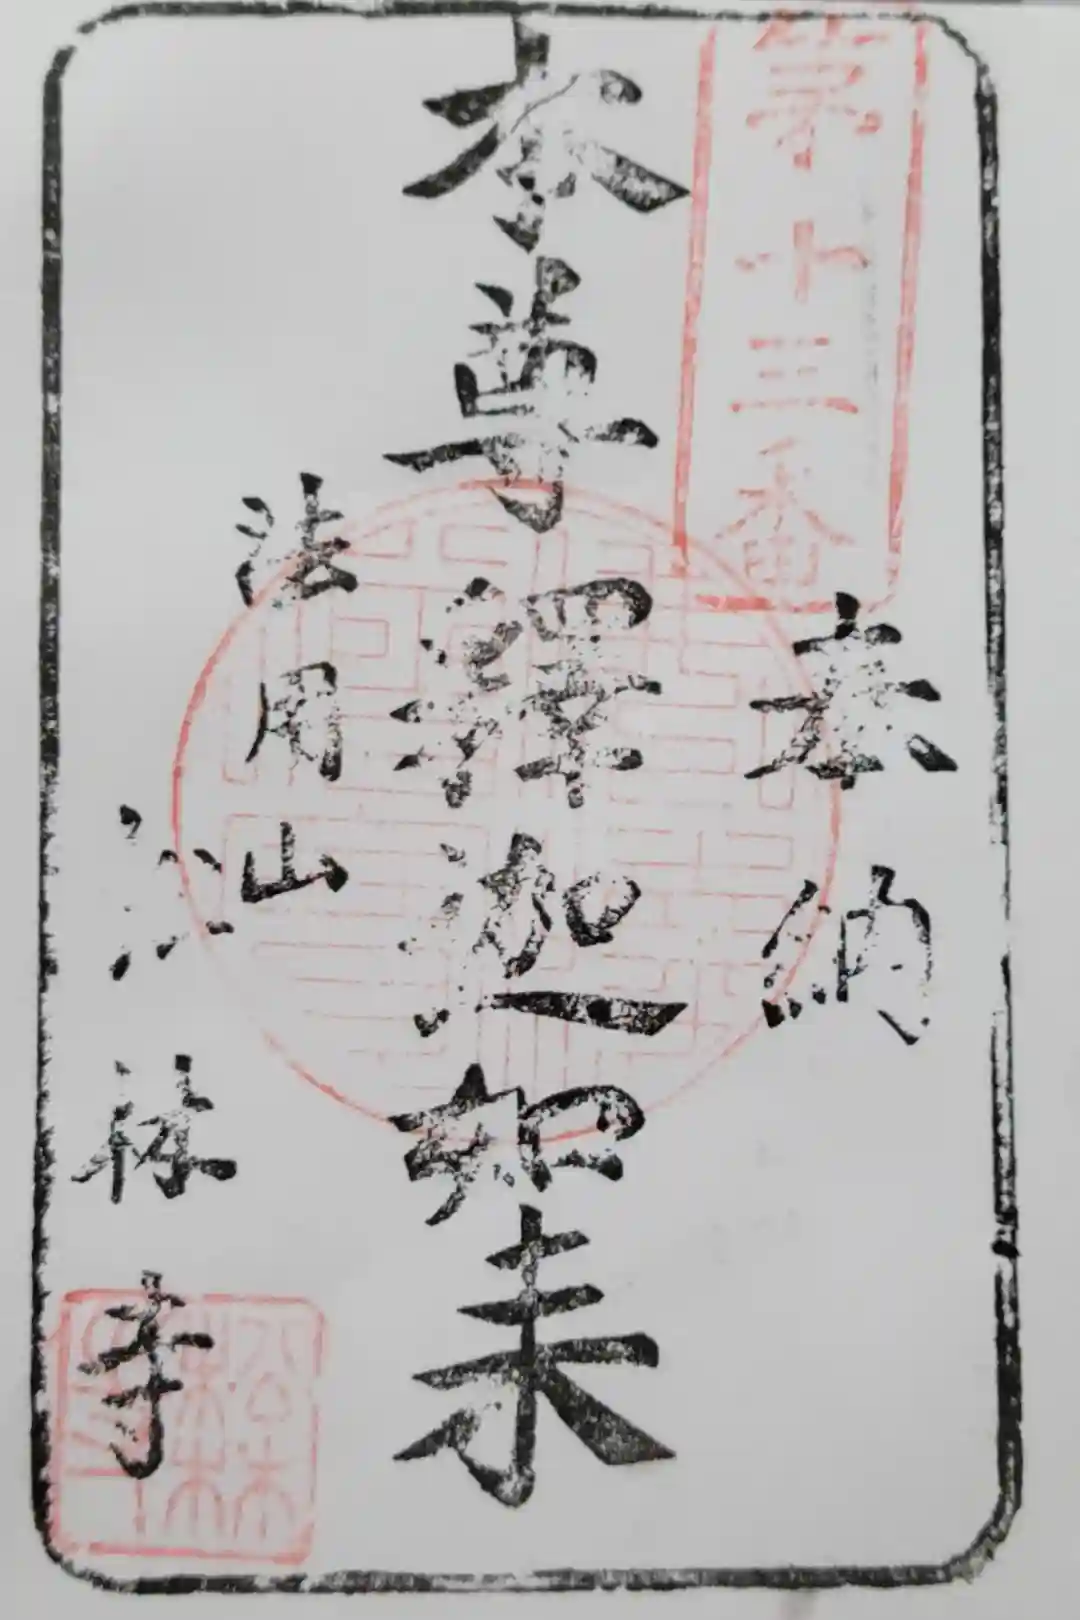 第十三番
奉納
本尊釋迦如来
法用山
松林寺